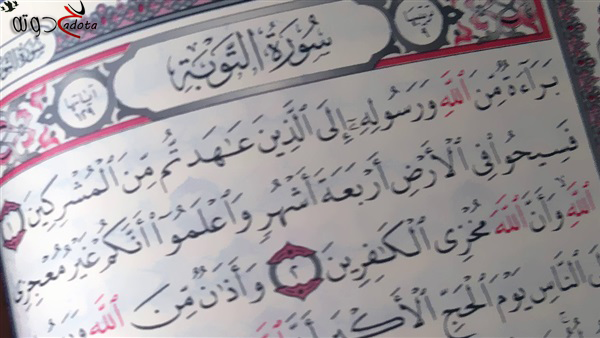 حدوته
adota
سُورَةُ التَّوْبَةِ
ترتيبها ٩
آياتها ١٢٩
بَرَآءَةٌ مِّنَ ٱللَّهِ وَرَسُولِهِۦٓ إِلَى ٱلَّذِينَ عَٰهَدتُّم مِّنَ ٱلْمُشْرِكِينَ ١
فَسِيحُوا۟ فِى ٱلْأَرْضِ أَرْبَعَةَ أَشْهُرٍ وَٱعْلَمُوٓا۟ أَنَّكُمْ غَيْرُ مُعْجِزِى
ٱللَّهِ وَأَنَّ ٱللَّهَ مُخْزِى ٱلْكَٰفِرِينَ ٢ وَأَذَٰنٌ مِّنَ ٱللَّهِ
ٱلنَّاسِ يَوْمَ ٱلْحَجِّ ٱلْأَكْبَرِ أَنَّ